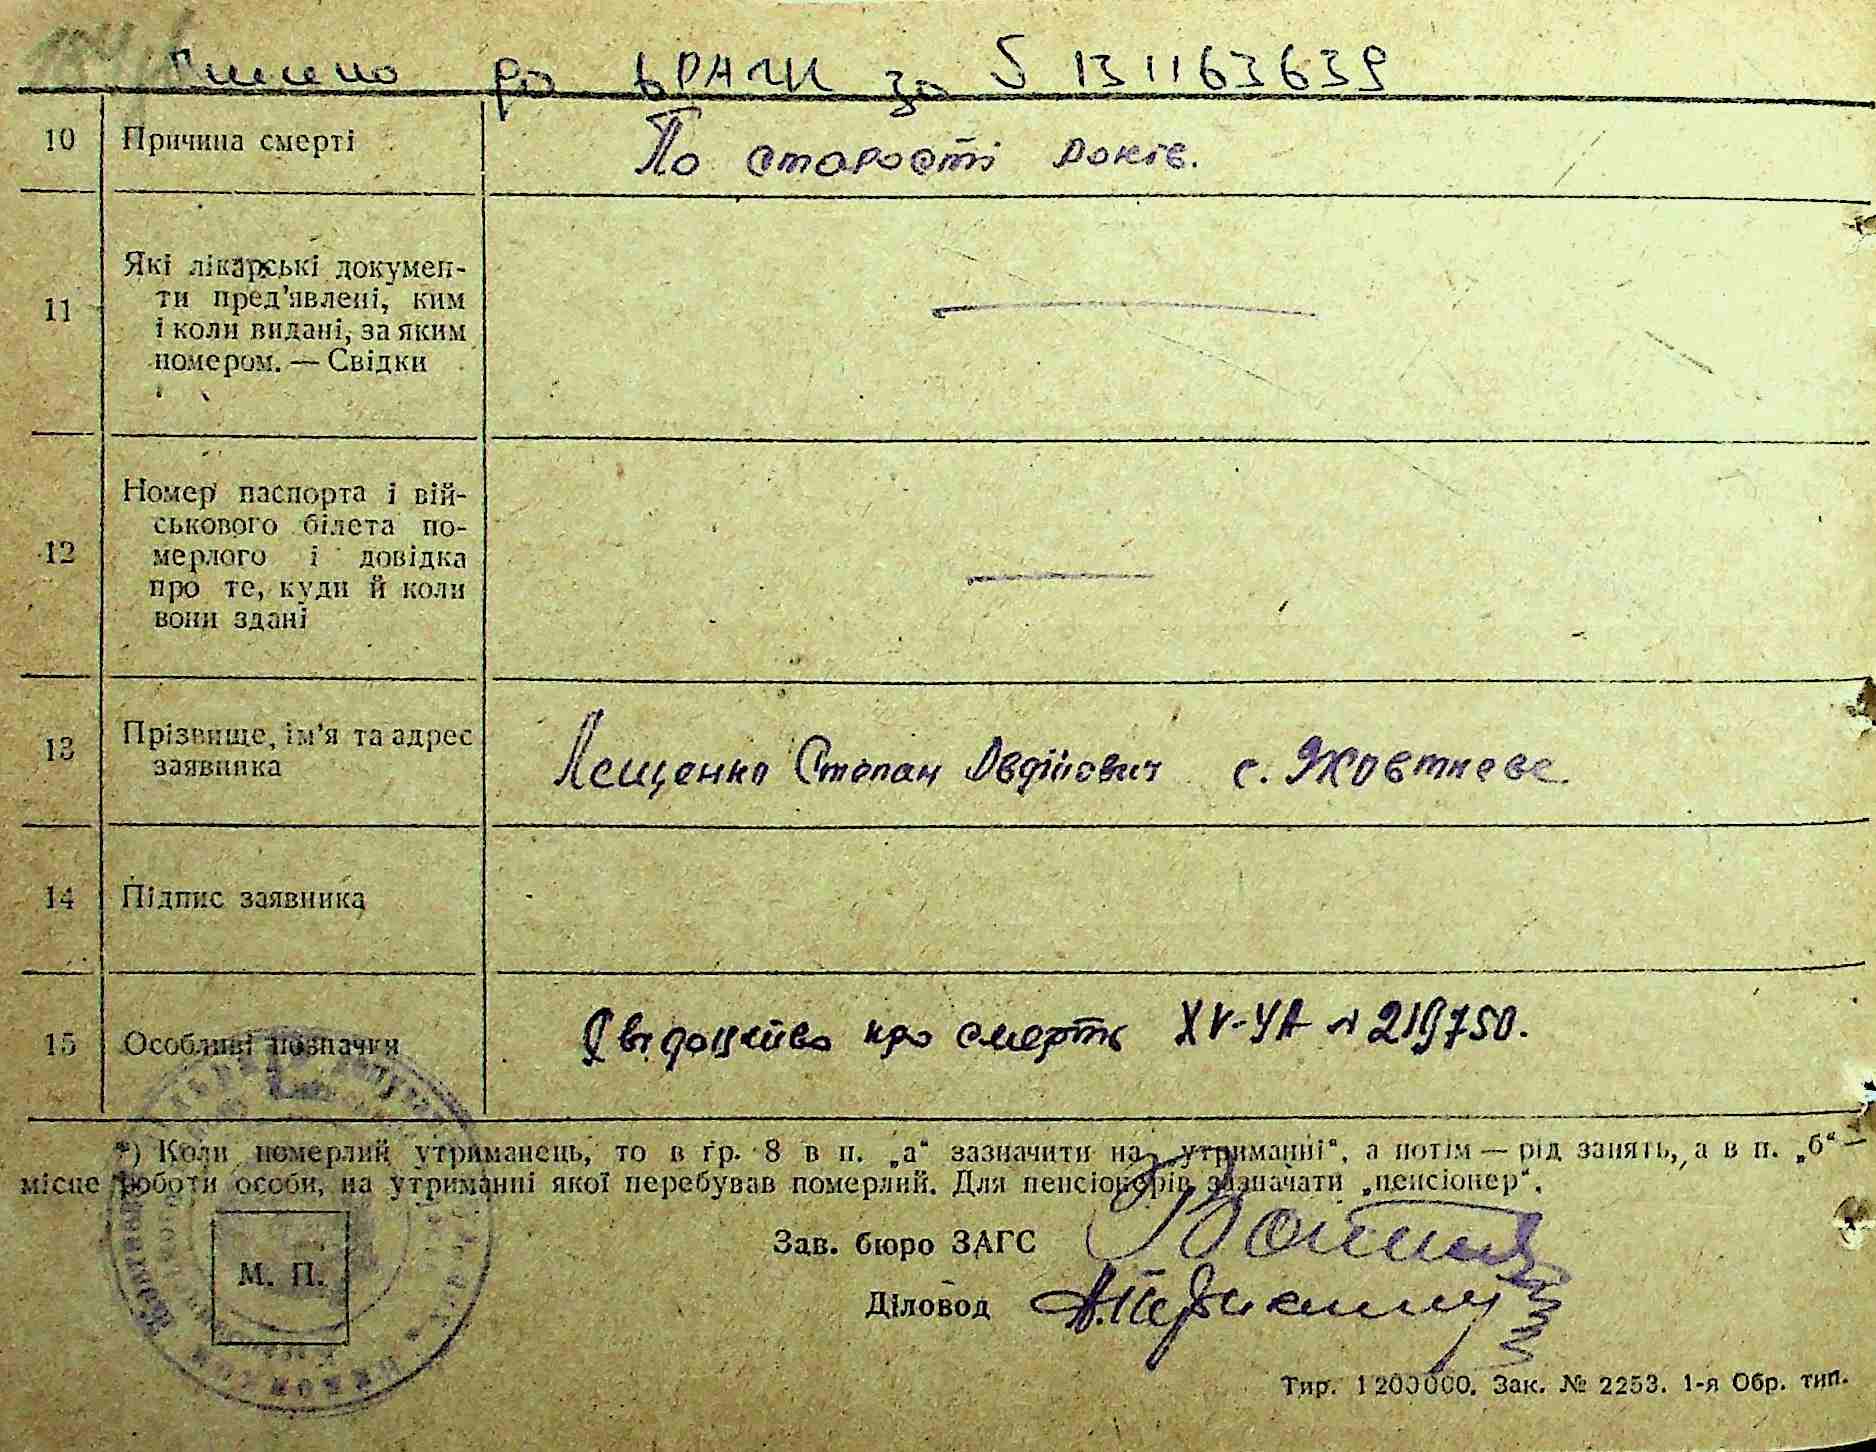 до ДРАЦС за S 131163639
10 Причина смерті По старості років.
11 Які лікарські докумен-
ти пред'явлені, ким
і коли видані, за яким
номером. — Свідки
12 Номер паспорта і вій-
ськового білета по-
мерлого і довідка
про те, куди й коли
вони здані
13 Прізвище, ім'я та адрес
заявника
Лещенко Степан Овдійович с. Жовтневе.
14 Підпис заявника
15 Особливі позначки Свідоцтво про смерть XV-УА № 219750.
*) Коли померлий утриманець, то в гр. 8 в п. „а“ зазначити на „утриманні“, а потім — рід занять, а в п. „б“ —
місце роботи особи, на утриманні якої перебував померлий. Для пенсіонерів зазначати „пенсіонер“.
Зав. бюро ЗАГС
М. П.
Діловод
Тир. 1200000. Зак. № 2253. 1-я Обр. тип.